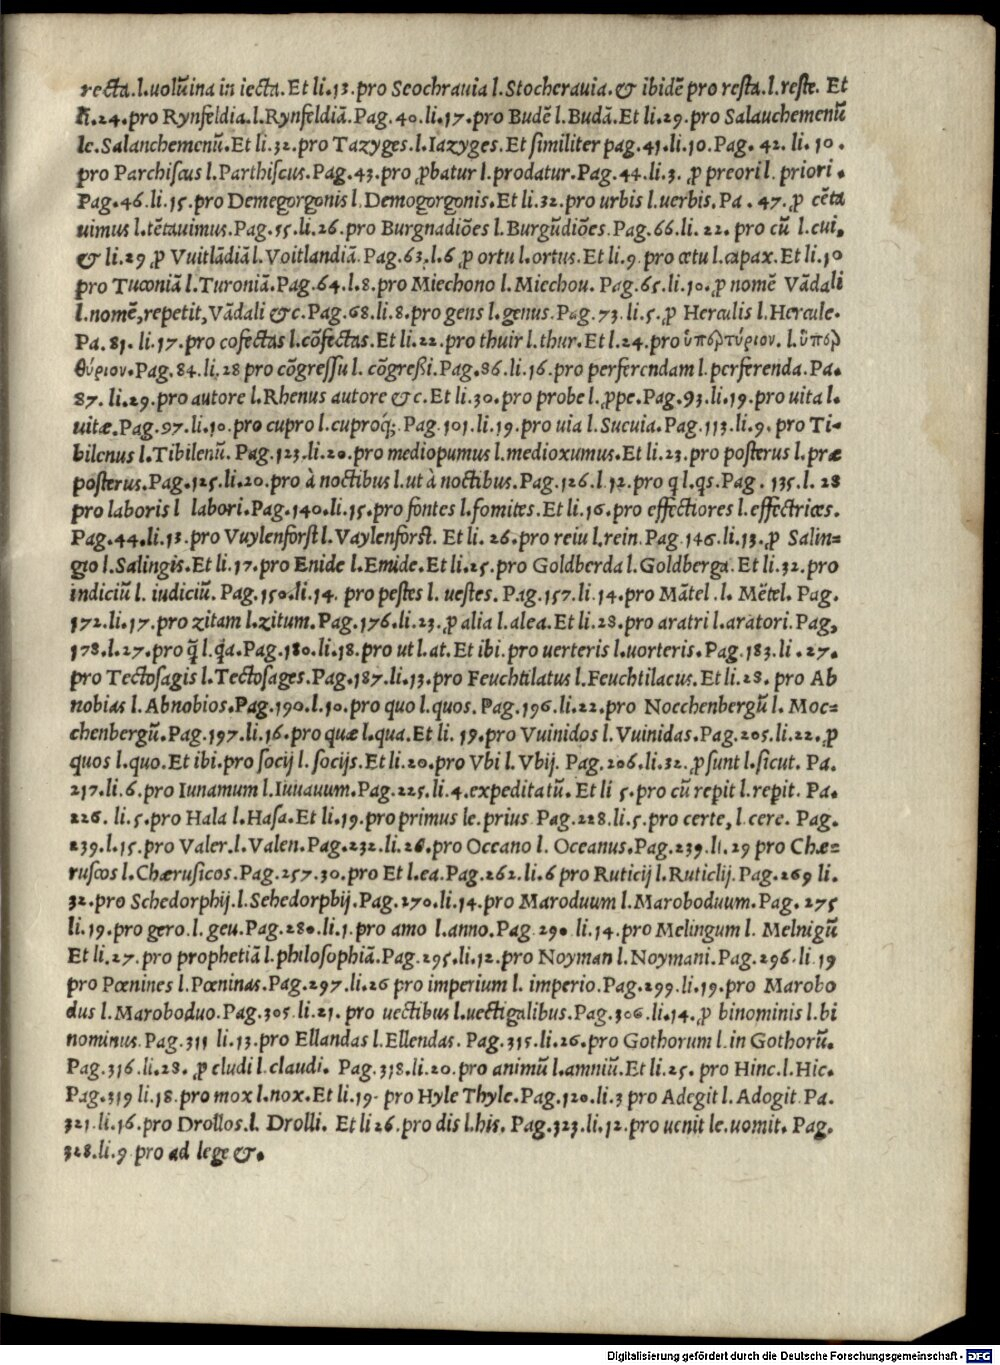 recta.l.uolũina in iecta. Et li.13. pro Seochrauia l. Stocherauia. & ibidẽ pro resta.l.reste. Et
li.24. pro Rynfeldia.l.Rynfeldiã.Pag.40.li.17.pro Budẽ l. Budã.Et li.29. pro Salauchemenũ
le. Salanchemenũ. Et li.32. pro Tazyges.l. Iazyges. Et similiter pag.41.li.10. Pag. 42. li. 10.
pro Parchiscus l.Parthiscus.Pag.43.pro ꝓbatur l.prodatur.Pag.44.li.3. ꝓ preori l. priori.
Pag.46.li.15.pro Demegorgonis l. Demogorgonis. Et li.32.pro urbis l.uerbis. Pa. 47. ꝓ cẽta
uimus l.tẽtauimus. Pag.55.li.26.pro Burgnadiões l. Burgũdiões. Pag.66.li.22. pro cũ l.cui.
& li.29 ꝓ Vuitlãdiã l. Voitlandiã. Pag.63.l.6 ꝓ ortu l.ortus. Et li.9. pro cetu l.capax. Et li.10
pro Tuconiã l.Turoniã.Pag.64.l.8.pro Miechono l.Miechou. Pag.65.li.10.ꝓ nomẽ Vãdali
l.nomẽ,repetit,Vãdali &c.Pag.68.li.8.pro gens l.genus. Pag.73.li.5.ꝓ Herculis l.Hercule.
Pa.81. li.17.pro cofectas l.cõfectas.Et li.22.pro thuir l.thur.Et l.24.pro ὑπερτύριον. l.ὑπερ
θύριον.Pag.84.li.28 pro cõgressu l. cõgreßi.Pag.86.li.16.pro perferendam l.perferenda.Pa.
87. li.29.pro autore l.Rhenus autore &c.Et li.30.pro probe l.ꝓpe.Pag.93.li.19.pro uita l.
uitæ.Pag.97.li.10.pro cupro l.cuproq́;. Pag.101.li.19.pro uia l.Sucuia.Pag.113.li.9. pro Ti-
bilenus l.Tibilenũ. Pag.123.li.20.pro mediopumus l.medioxumus.Et li.23.pro posterus l.præ
posterus.Pag.125.li.20.pro à noctibus l.ut à noctibus.Pag.126.l.12.pro q̃ l.qs.Pag. 135.l.28
pro laboris l labori.Pag.140.li.15.pro fontes l.fomites.Et li.16.pro effectiores l.effectrices.
Pag.44.li.13.pro Vuylenforst l. Vaylenforst. Et li. 26.pro reiu l.rein. Pag.146.li.13.ꝓ Salin=
gio l.Salingis.Et li.17.pro Enide l.Emide.Et li.25.pro Goldberda l.Goldberga. Et li.32.pro
indiciũ l. iudiciũ. Pag.150.li.14. pro pestes l. uestes. Pag.157.li.14.pro Mãtel .l. Mẽtel. Pag.
172.li.17.pro zitam l.zitum.Pag.176.li.23.ꝓ alia l.alea.Et li.28.pro aratri l.aratori. Pag,
178.l.27.pro q̃ l.qa.Pag.180.li.18.pro ut l.at. Et ibi.pro uerteris l.uorteris.Pag.183.li.27.
pro Tectosagis l.Tectosages.Pag.187.li.13.pro Feuchtilatus l.Feuchtilacus. Et li.28. pro Ab
nobias l.Abnobios.Pag.190.l.10.pro quo l.quos. Pag.196.li.22.pro Nocchenbergũ l. Moc=
chenbergũ.Pag.197.li.16.pro quæ l.qua.Et li. 19.pro Vuinidos l.Vuinidas.Pag.205.li.22.ꝓ
quos l.quo.Et ibi.pro socij l. socijs.Et li.20.pro Vbi l.Vbij. Pag.206.li.32.ꝓ sunt l.sicut. Pa.
217.li.6.pro Iunamum l.Iuuauum.Pag.225.li.4.expeditatũ. Et li 5.pro cũ repit l.repit. Pa.
226. li.5.pro Hala l.Hasa.Et li.19.pro primus le.prius Pag.228.li.5.pro certe, l.cere. Pag.
239.l.15.pro Valer.l.Valen.Pag.232.li.26.pro Oceano l. Oceanus.Pag.239.li.29 pro Chæ=
ruscos l.Chærusicos.Pag.257.30.pro Et l.ea.Pag.262.li.6 pro Ruticij l.Ruticlij.Pag.269 li.
32.pro Schedorphij.l.Sehedorpbij.Pag.270.li.14.pro Maroduum l.Maroboduum.Pag. 275
li.19.pro gero.l. geu.Pag.280.li.1.pro amo l.anno.Pag.290 li.14.pro Melingum l. Melnigũ
Et li.27.pro prophetiã l.philosophiã.Pag.295.li.12.pro Noyman l.Noymani.Pag.296.li.19
pro Pœnines l.Pœninas.Pag.297.li.26 pro imperium l. imperio.Pag.299.li.19.pro Marobo
dus l.Maroboduo.Pag.305.li.21. pro uectibus l.uectigalibus.Pag.306.li.14.ꝓ binominis l.bi
nominus.Pag.311 li.13.pro Ellandas l.Ellendas. Pag.315.li.26.pro Gothorum l.in Gothorũ.
Pag.316.li.28. ꝓ cludi l.claudi. Pag.318.li.20.pro animũ l.amniũ.Et li.25. pro Hinc.l.Hic.
Pag.319 li.18.pro mox l.nox.Et li.19. pro Hyle Thyle.Pag.120.li.3 pro Adegit l.Adogit.Pa.
321.li.16.pro Drollos.l. Drolli. Et li 26.pro dis l.his. Pag.323.li.12.pro uenit le.uomit. Pag.
328.li.9 pro ad lege &.
Digitalisierung gefördert durch die Deutsche Forschungsgemeinschaft - DFG